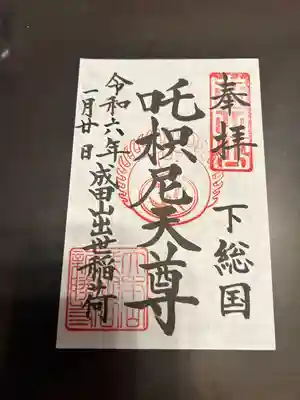 奉拝
下総国
吒枳尼天尊
成田山出世稲荷
令和六年
一月廿日